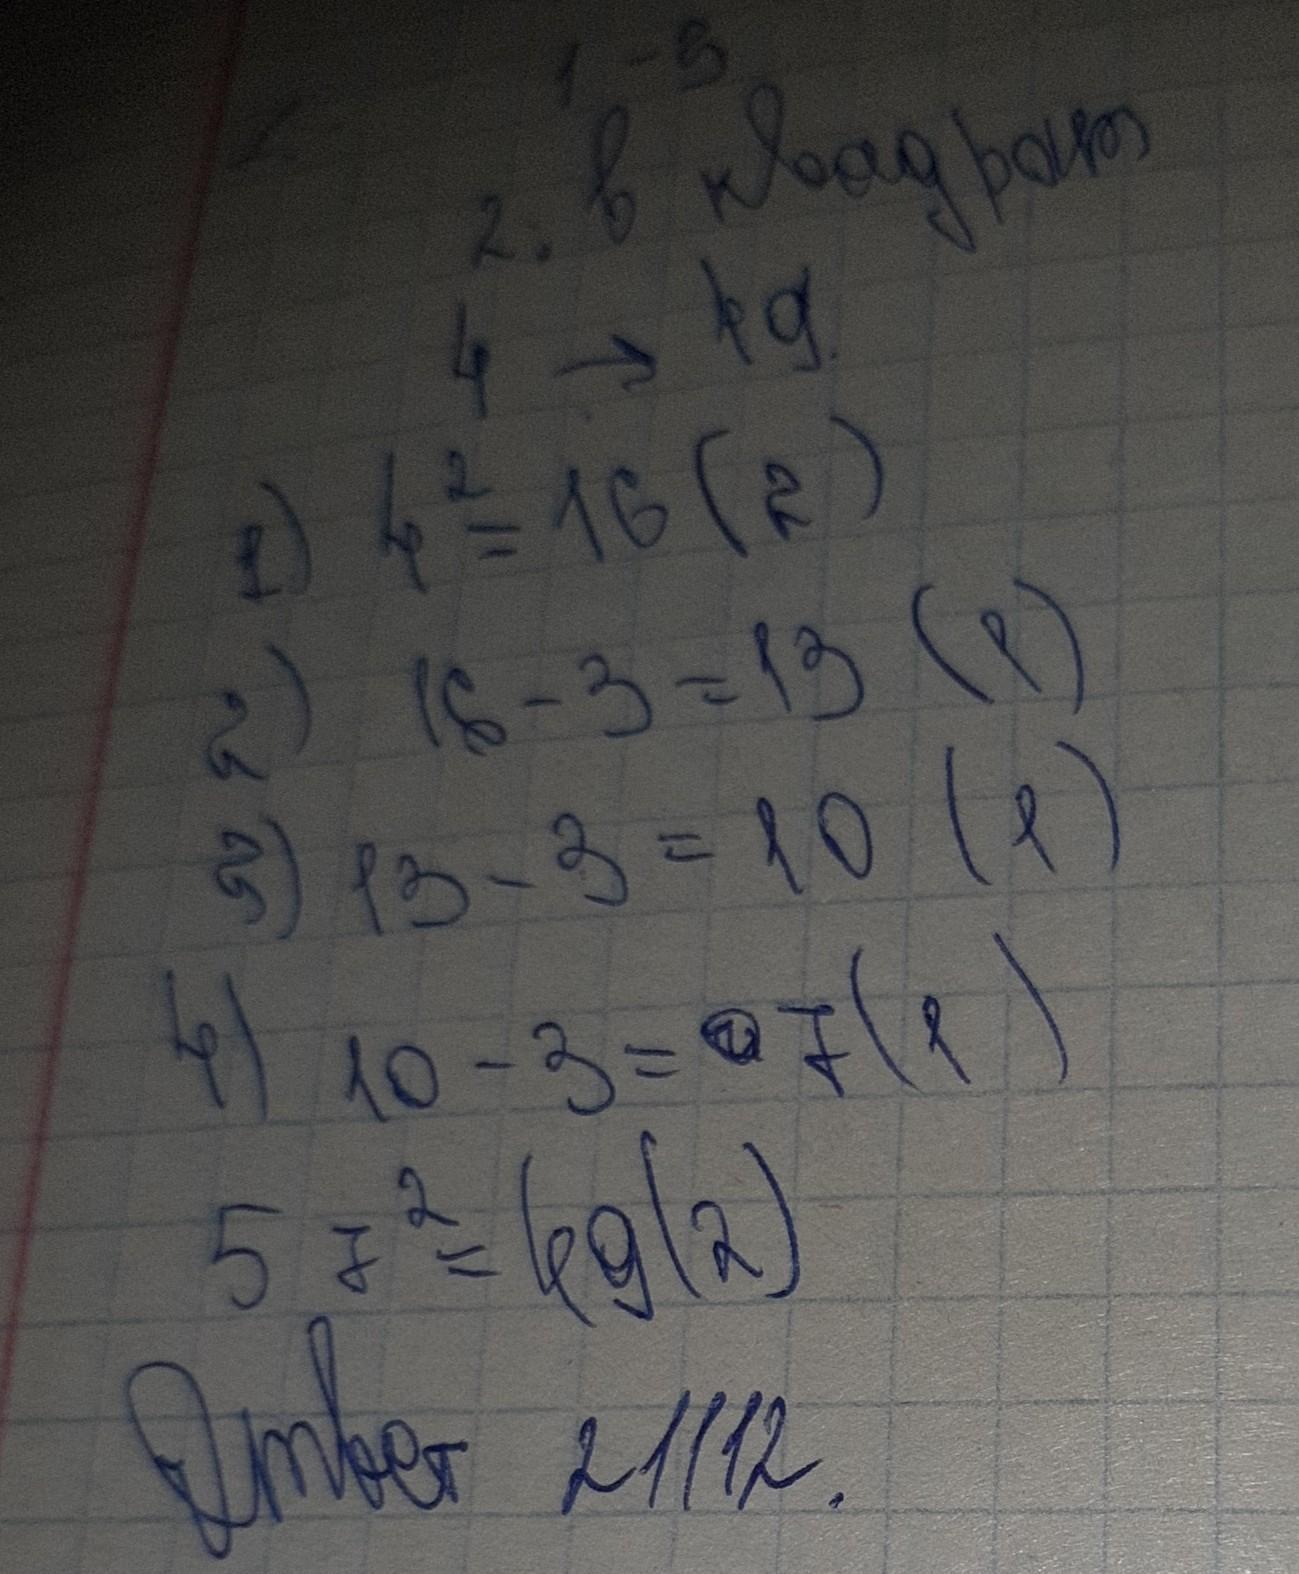 1 -3
2. в квадрат
4 → 49.
1) 4² = 16 (2)
2) 16 - 3 = 13 (1)
3) 13 - 3 = 10 (1)
4) 10 - 3 = 7 (1)
5 7² = 49 (2)
Ответ 21112.